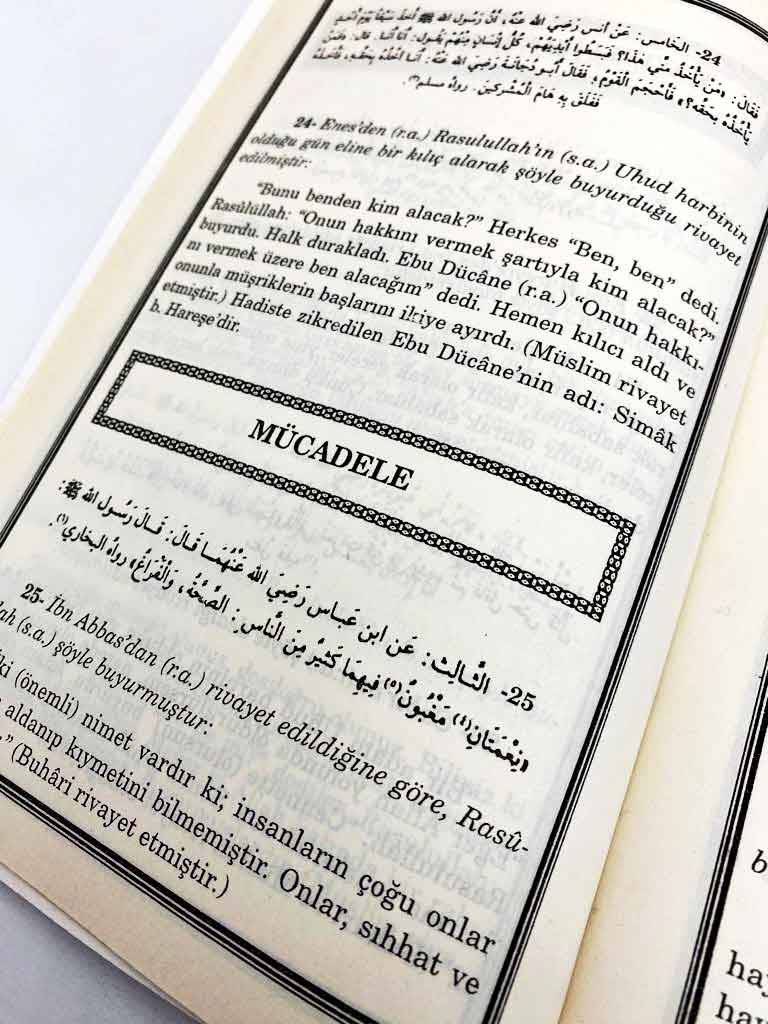 24- الخامس: عَنْ أَنَس رَضِيَ اللهُ عَنْهُ، أَنَّ رَسُولَ اللهِ ﷺ أَخَذَ سَيْفًا يَوْمَ أُحُدٍ
فَقَالَ: «مَنْ يَأْخُذُ مِنِّي هَذَا؟ فَبَسَطُوا أَيْدِيَهُمْ، كُلُّ إنْسَانٍ مِنْهُمْ يَقُولُ: أَنَا أَنَا. قَالَ: «فَمَنْ
يَأْخُذُهُ بِحَقِّه؟» فَأَحْجَمَ الْقَوْمُ، فَقَالَ أَبُو دُجَانَةَ رَضِيَ اللهُ عَنْهُ: أَنَا آخُذُهُ بِحَقِّهِ، فَأَخَذَهُ
فَفَلَقَ بِهِ هَامَ الْمُشْرِكِينَ. رواه مسلم
24- Enes'den (r.a.) Rasulullah'ın (s.a.) Uhud harbinin
olduğu gün eline bir kılıç alarak şöyle buyurduğu rivayet
edilmiştir:
"Bunu benden kim alacak?" Herkes "Ben, ben" dedi.
Rasûlüllah: "Onun hakkını vermek şartıyla kim alacak?"
buyurdu. Halk durakladı. Ebu Dücâne (r.a.) "Onun hakkı-
nı vermek üzere ben alacağım" dedi. Hemen kılıcı aldı ve
onunla müşriklerin başlarını ikiye ayırdı. (Müslim rivayet
etmiştir.) Hadiste zikredilen Ebu Dücâne'nin adı: Simâk
b. Hareşe'dir.
MÜCADELE
25- الثَّالِث: عَن ابن عَباس رَضِيَ الله عَنْهُمَا قَالَ: قَالَ رَسُول الله ﷺ:
«نِعْمَتَانِ(٤) مَغْبُونٌ(٥) فِيهِمَا كَثيرٌ مِنَ النَّاس: الصِّحَّةُ، وَالْفَرَاغُ» رواه البخاري(٦).
25- İbn Abbas'dan (r.a.) rivayet edildiğine göre, Rasû-
lah (s.a.) şöyle buyurmuştur:
ki (önemli) nimet vardır ki; insanların çoğu onlar
aldanıp kıymetini bilmemiştir. Onlar, sıhhat ve
." (Buhâri rivayet etmiştir.)
b
hay
hay